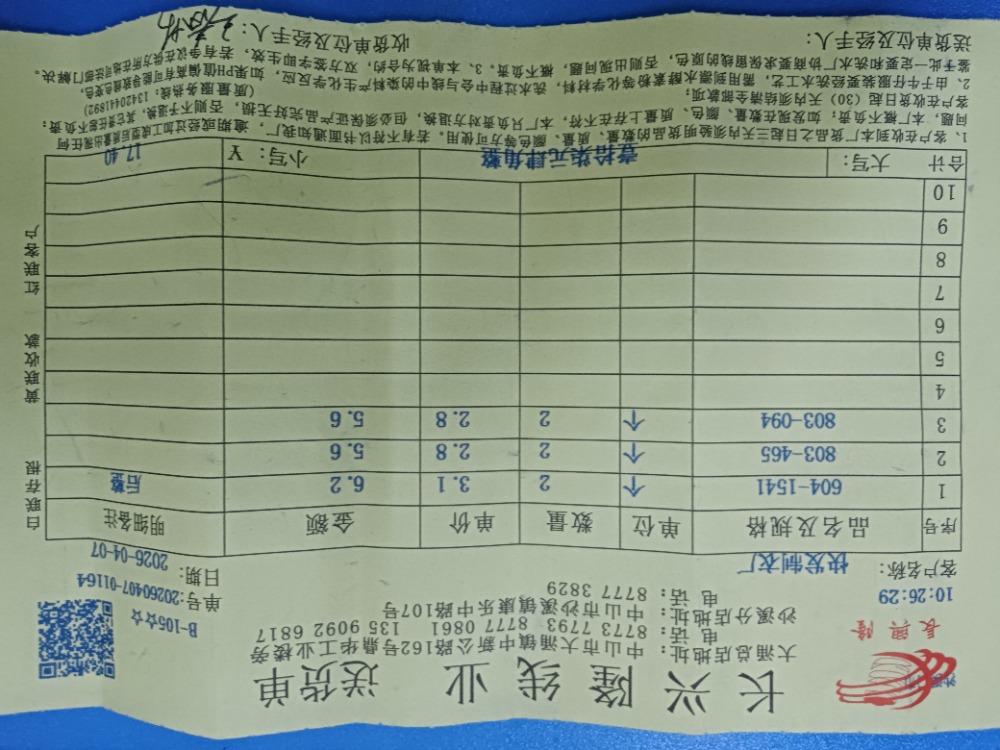 长兴隆线业 送货单
長興隆
大涌总店地址: 中山市大涌镇中新公路162号鼎华工业楼旁
电话: 8773 7793 8777 0861 135 9092 6817
沙溪分店地址: 中山市沙溪镇康乐中路107号
电话: 8777 3829
B-105☆☆
单号:20260407-01164
日期: 2026-04-07
10:26:29
客户名称: 快发制衣厂
序号 品名及规格 单位 数量 单价 金额 明细备注
1 604-1541 个 2 3.1 6.2 后整
2 803-465 个 2 2.8 5.6
3 803-094 个 2 2.8 5.6
4
5
6
7
8
9
10
合计 大写: 壹拾柒元肆角整 小写: ¥ 17.40
白联存根 黄联收款 红联客户
1、客户在收到本厂货品之日起三天内须鉴明货品的数量、质量、颜色等方可使用。若有不符以书面通知我厂,逾期或经过加工成型后质量出现任何
问题,本厂概不负责;如发现在数量、颜色、质量上存在不符,本厂只负责对方退换,但必须保证产品完好无损,否则不予退换,其它责任恕不负责;
客户在收货日起(30)天内须结清全部款项; (质量服务热线: 13420441892)
2、由于牛仔服装要经洗水工艺,需用到漂水酵素粉等化学材料,洗水过程中会与线中的染料产生化学反应,如果PH值偏高有可能导致颜色变色,
鉴于此一定要和洗水厂协商要求保留线的原色,否则出现问题,概不负责。3、本单视为合约,双方签字即生效,若有争议在供方所在地司法部门解决。
送货单位及经手人: 收货单位及经手人: